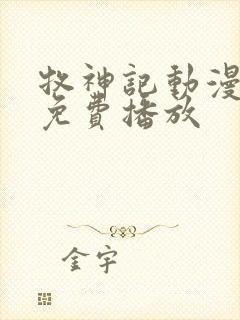 牧神記動漫
免費播放
金宇